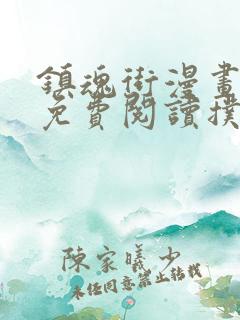 鎮魂街漫畫
免費閱讀撲
陳家曦少
未经同意禁止转载